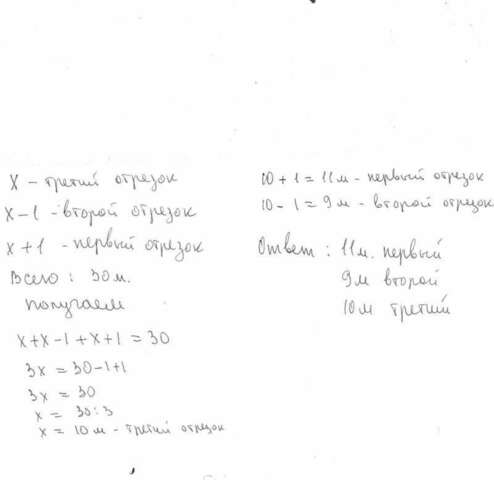 x – третий отрезок
x – 1 – второй отрезок
x + 1 – первый отрезок
Всего : 30 м.
получаем
x + x – 1 + x + 1 = 30
3x = 30 – 1 + 1
3x = 30
x = 30 : 3
x = 10 м – третий отрезок
10 + 1 = 11 м – первый отрезок
10 – 1 = 9 м – второй отрезок
Ответ : 11 м. первый
9 м второй
10 м третий